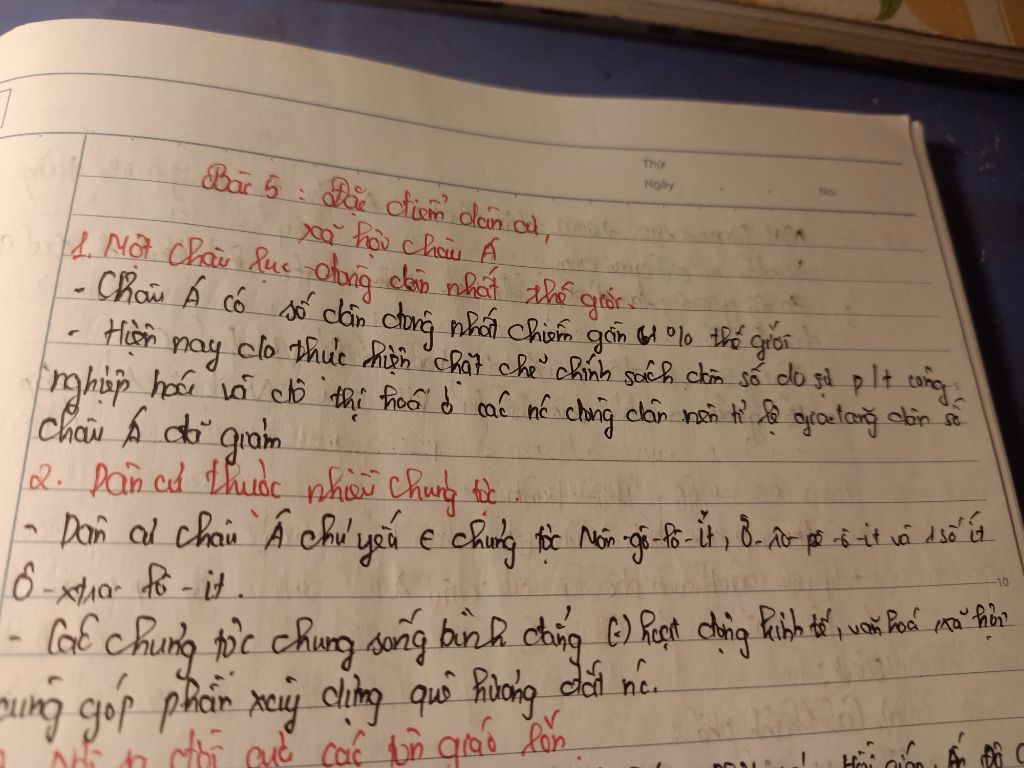 Thứ
Ngày
No.
Bài 5: Đặc điểm dân cư,
xã hội châu Á
1. Một châu lục đông dân nhất thế giới.
- Châu Á có số dân đông nhất chiếm gần 61% thế giới
- Hiện nay do thực hiện chặt chẽ chính sách dân số do sự p/t công
nghiệp hoá và đô thị hoá ở các nc đông dân nên tỉ lệ gia tăng dân số
châu Á đã giảm
2. Dân cư thuộc nhiều chủng tộc.
- Dân cư châu Á chủ yếu ∈ chủng tộc Môn-gô-lô-it, Ơ-rô-pê-ô-it và 1 số ít
Ô-xtra-lô-it.
- Các chủng tộc chung sống bình đẳng (:) hoạt động kinh tế, văn hoá, xã hội
cùng góp phần xây dựng quê hương đất nc.
đời của các tôn giáo lớn
Hồi giáo, Ấn Độ
10